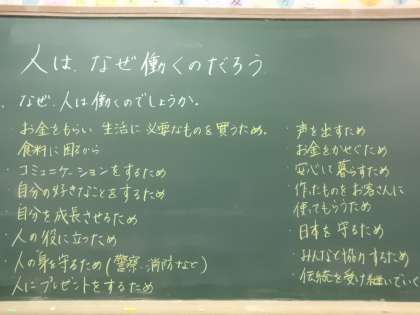 人は、なぜ働くのだろう
なぜ、人は働くのでしょうか。
・お金をもらい 生活に必要なものを買うため。
食料に困るから
・コミュニケーションをするため
・自分の好きなことをするため
・自分を成長させるため
・人の役に立つため
・人の身を守るため(警察、消防など)
・人にプレゼントをするため
・声を出すため
・お金をかせぐため
・安心して暮らすため
・作ったものをお客さんに
使ってもらうため
・日本を守るため
・みんなと協力するため
・伝統を受け継いでいく